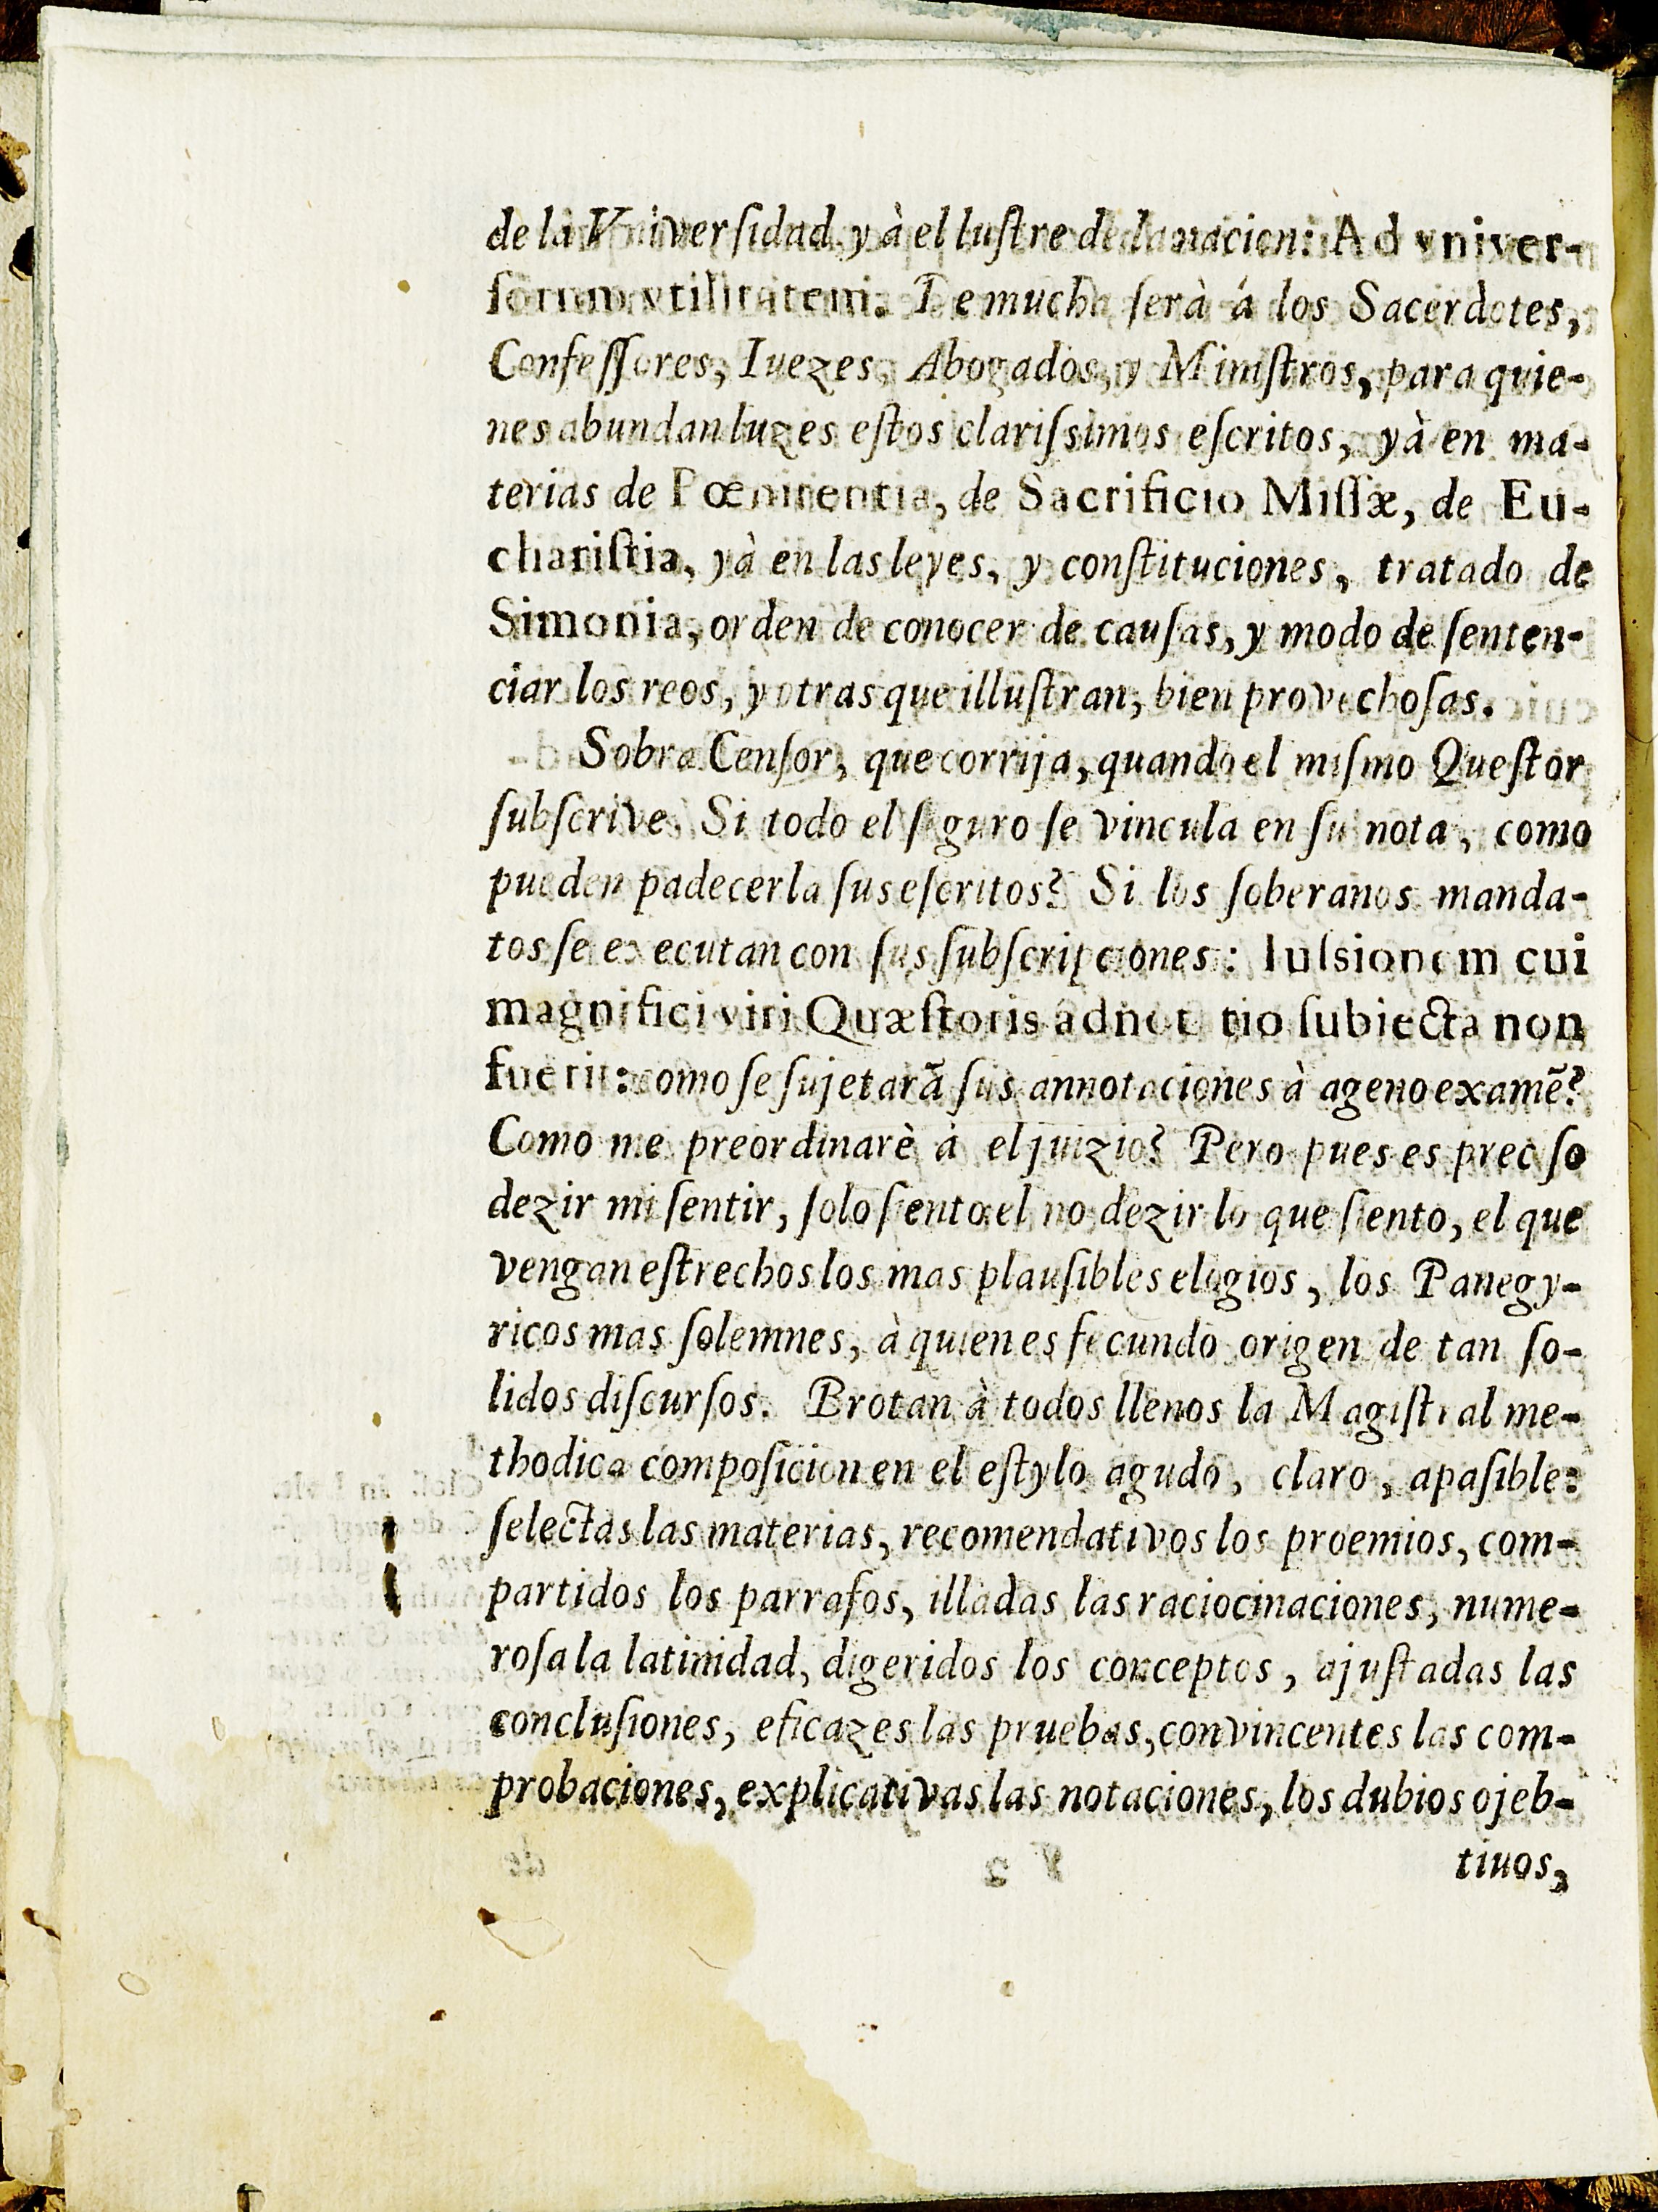 de la Vniverſidad, y à el luſtre de la nacion: Ad vniver-
ſorum vtilitatem. De mucha ſerà á los Sacerdotes,
Confeſſores, Iuezes, Abogados, y Miniſtros, para quie-
nes abundan luzes eſtos clariſsimos eſcritos, yà en ma-
terias de Pœnitentia, de Sacrificio Miſſæ, de Eu-
chariſtia, yà en las leyes, y conſtituciones, tratado de
Simonia, orden de conocer de cauſas, y modo de ſenten-
ciar los reos, y otras que illuſtran, bien provechoſas.
Sobra Cenſor, que corrija, quando el miſmo Queſtor
ſubſcrive. Si todo el ſeguro ſe vincula en ſu nota, como
pueden padecerla ſus eſcritos? Si los ſoberanos manda-
tos ſe executan con ſus ſubſcripciones: Iuſsionem cui
magnifici viri Quæſtoris adnotatio ſubiecta non
fuerit: como ſe ſujetarã ſus annotaciones à ageno examẽ?
Como me preordinarè á el juizio? Pero pues es preciſo
dezir mi ſentir, ſolo ſiento el no dezir lo que ſiento, el que
vengan eſtrechos los mas plauſibles elogios, los Panegy-
ricos mas ſolemnes, à quien es fecundo origen de tan ſo-
lidos diſcurſos. Brotan à todos llenos la Magiſtral me-
thodica compoſicion en el eſtylo agudo, claro, apaſible:
ſelectas las materias, recomendativos los proemios, com-
partidos los parrafos, illadas las raciocinaciones, nume-
roſa la latinidad, digeridos los conceptos, ajuſtadas las
concluſiones, eficazes las pruebas, convincentes las com-
probaciones, explicativas las notaciones, los dubios ojeb-
tiuos,